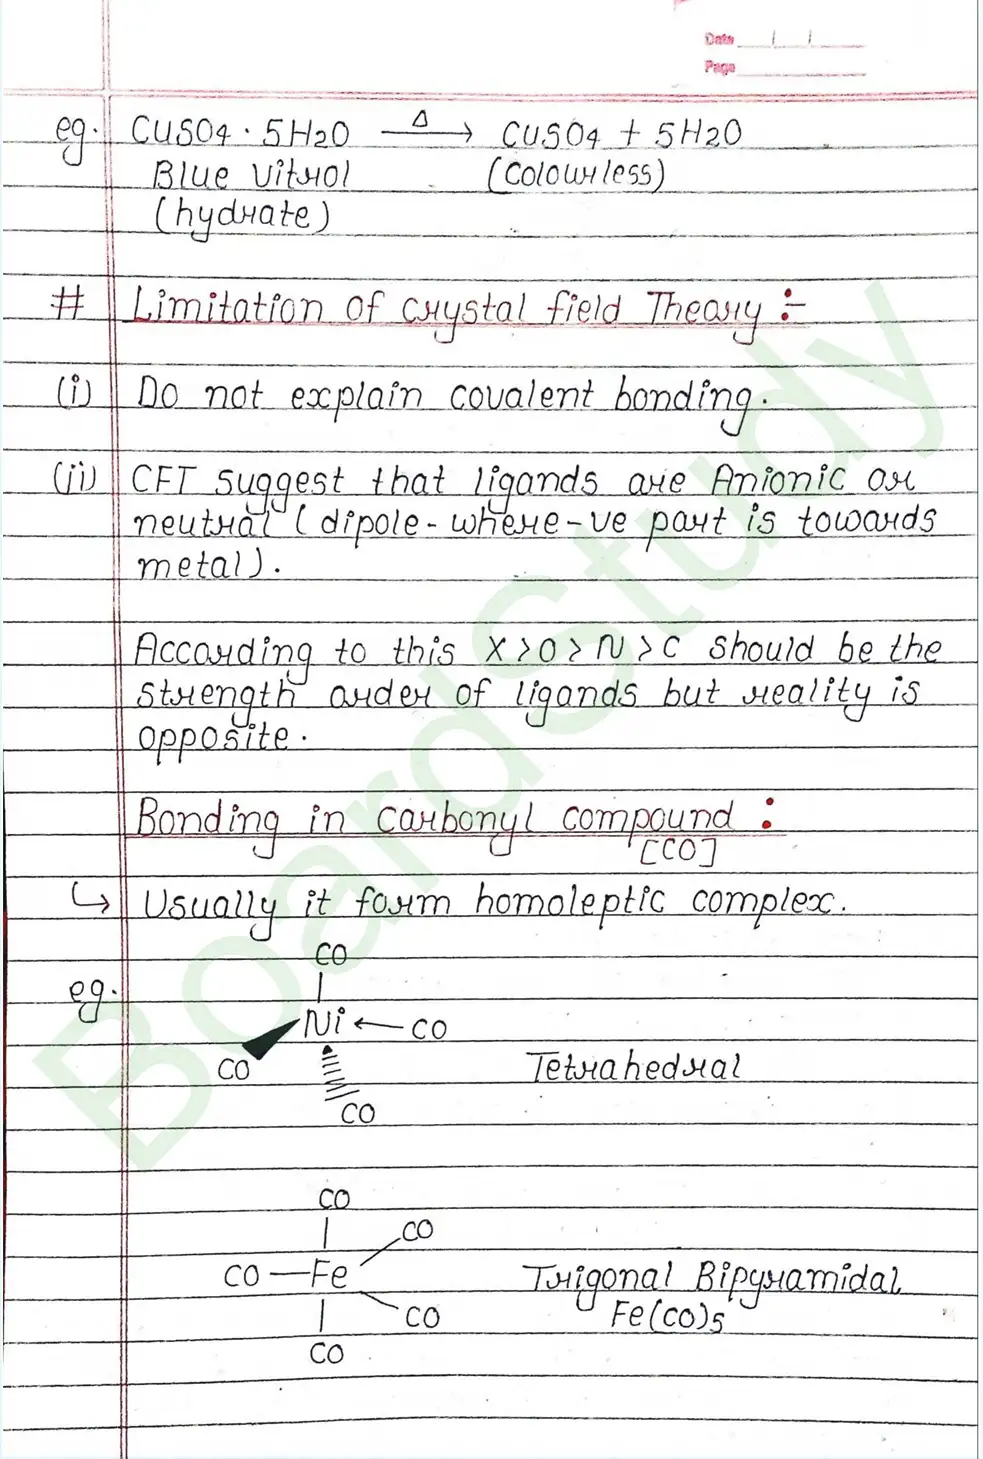 Date
Page
eg. CuSO4 · 5H2O —Δ→ CuSO4 + 5H2O
Blue vitrol (colourless)
(hydrate)
# Limitation of crystal field Theory :-
(i) Do not explain covalent bonding.
(ii) CFT suggest that ligands are Anionic or
neutral (dipole-where -ve part is towards
metal).
According to this X > O > N > C should be the
strength order of ligands but reality is
opposite.
Bonding in carbonyl compound :
[CO]
↳ Usually it form homoleptic complex.
CO
eg.
Ni ← CO
CO
Tetrahedral
CO
CO
CO
CO — Fe
Trigonal Bipyramidal
CO
Fe(CO)5
CO
BoardStudy